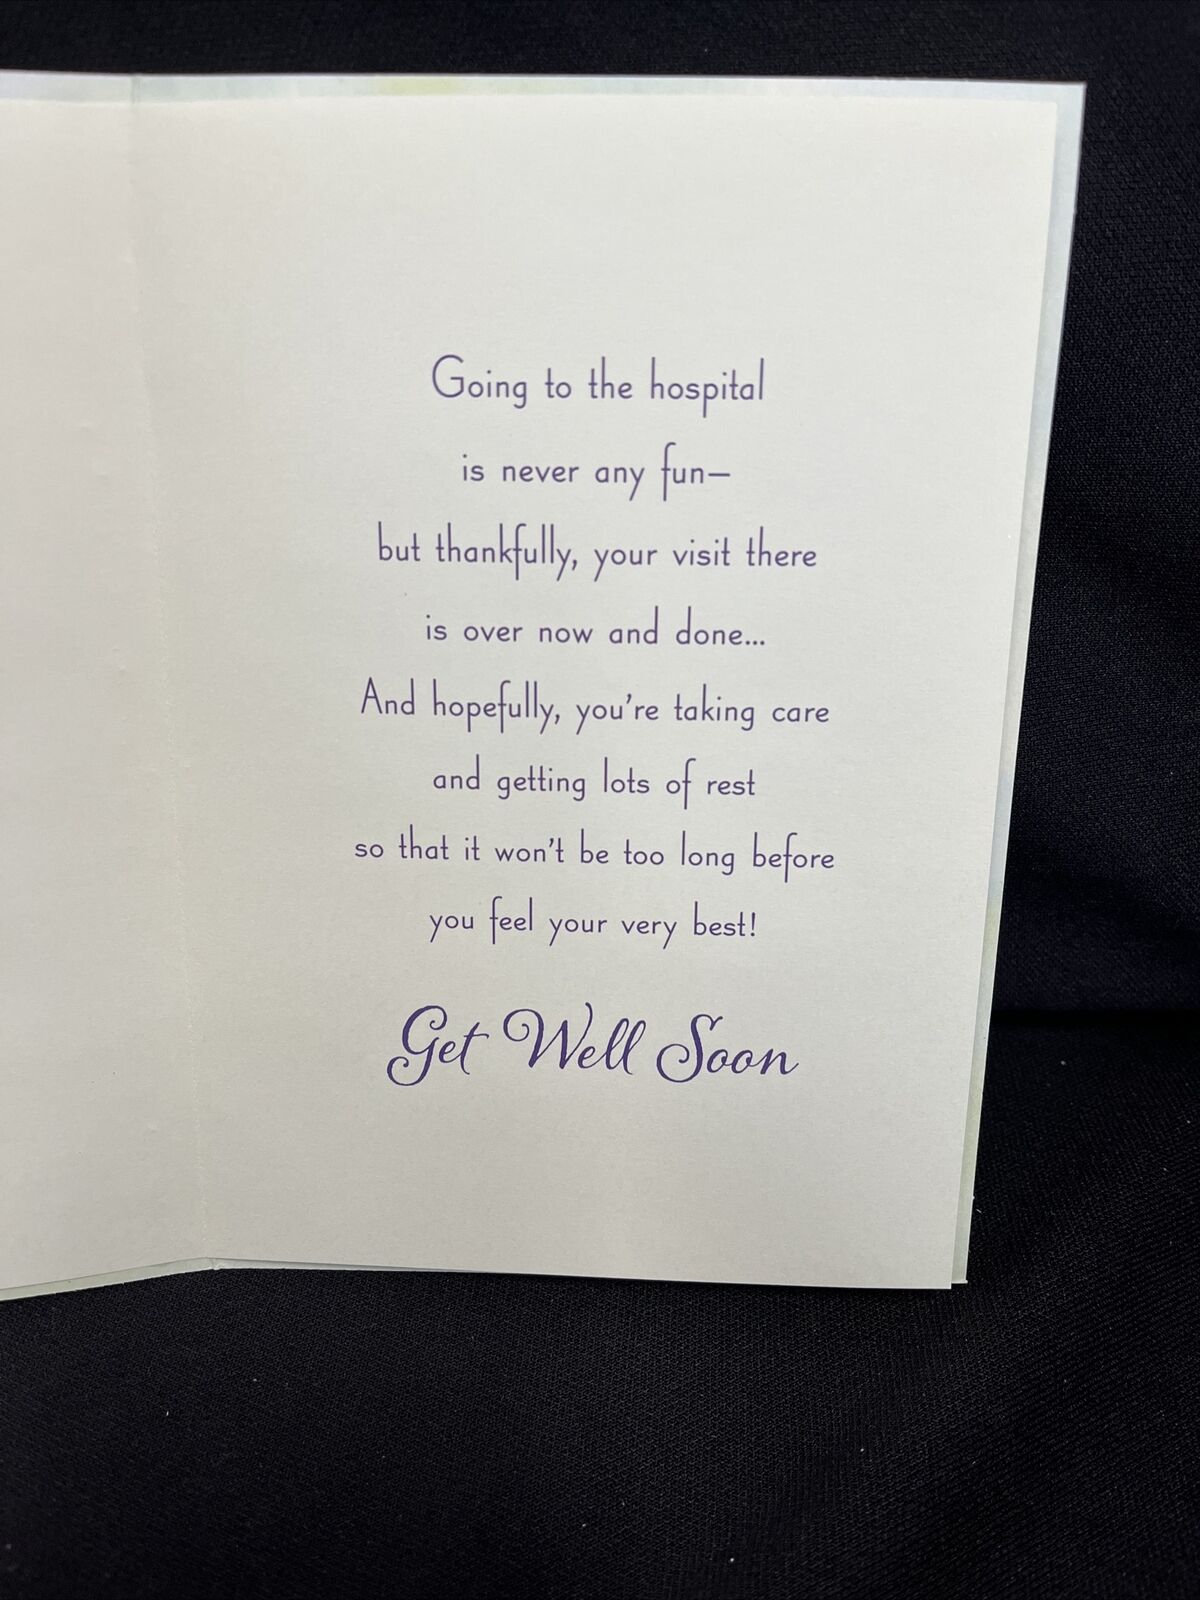 Going to the hospital
is never any fun—
but thankfully, your visit there
is over now and done...
And hopefully, you're taking care
and getting lots of rest
so that it won't be too long before
you feel your very best!
Get Well Soon